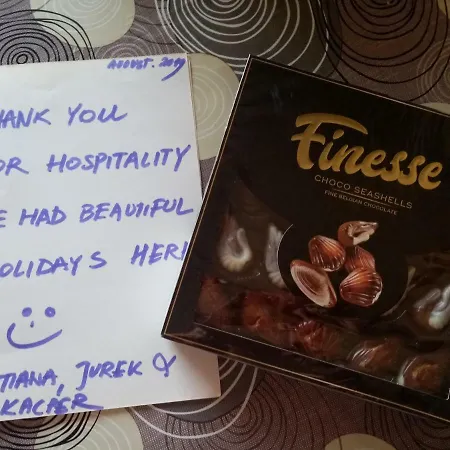 AUGUST. 2019
HANK YOU
OR HOSPITALITY
E HAD BEAUTIFUL
OLIDAYS HERE
TIANA, JUREK &
KACPER
Finesse
CHOCO SEASHELLS
FINE BELGIAN CHOCOLATE